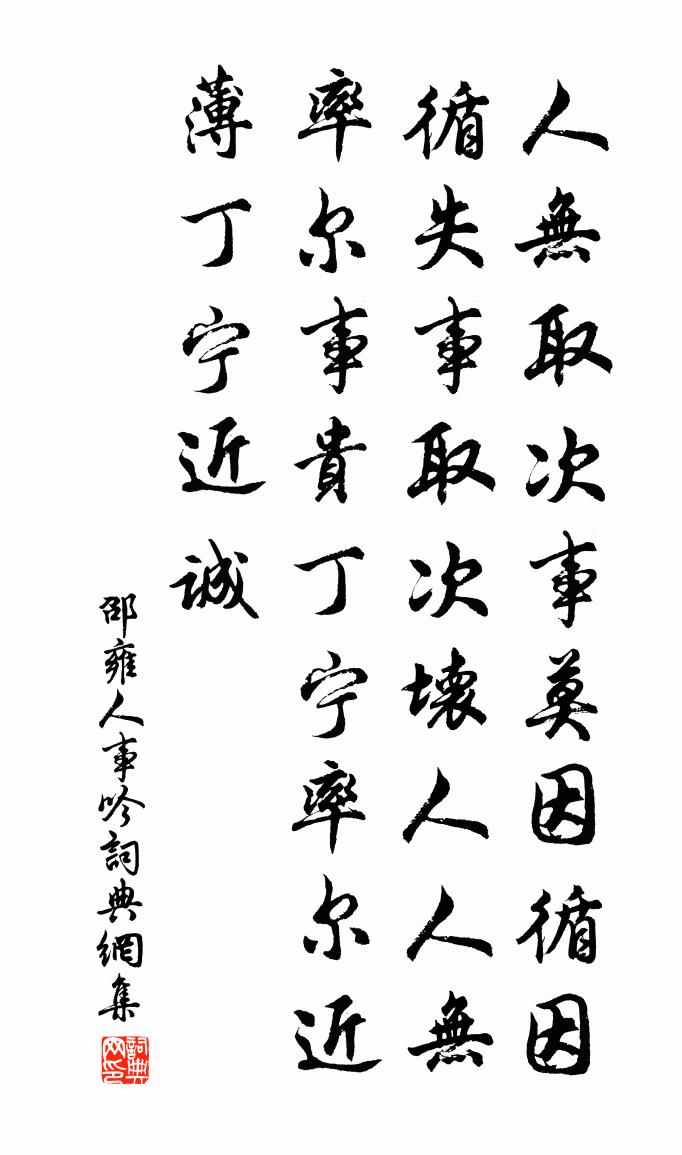 人無取次事莫因循因
循失事取次壊人人無
率尔事貴丁宁率尔近
薄丁宁近誠
邵雍人事吟詞典網集
詞典网印